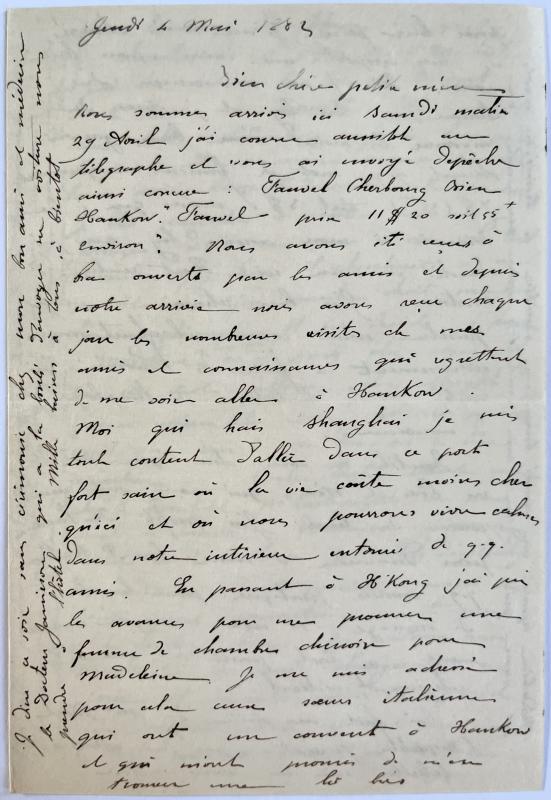 Jeudi 4 Mai 1882
Bien chère petite mère
Nous sommes arrivés ici Samedi matin
29 Avril j'ai couru aussitôt au
télégraphe et vous ai envoyé dépêche
ainsi conçue : Fauvel Cherbourg Orien
Hankow". Fauvel prix 11 $ 20 soit 55 f
environ". Nous avons été reçus à
bras ouverts par les amis et depuis
notre arrivée nous avons reçu chaque
jour les nombreuses visites de mes
amis et connaissances qui regrettent
de me voir aller à Hankow.
Moi qui hais Shanghai je suis
tout content d'aller dans ce port
fort sain où la vie coûte moins cher
qu'ici et où nous pourrons vivre calmes
dans notre intérieur entourés de q.q.
amis. En passant à H'Kong j'ai pris
les avances pour me procurer une
femme de chambre chinoise pour
Madeleine Je me suis adressé
pour cela aux sœurs italiennes
qui ont un couvent à Hankow
et qui m'ont promis de m'en
trouver une
Je dîne ce soir sans cérémonie chez mon bon ami et médecin
le Docteur Jamieson qui a la bonté d'envoyer sa voiture nous
prendre à l'hôtel. Mille baisers à tous, à bientôt